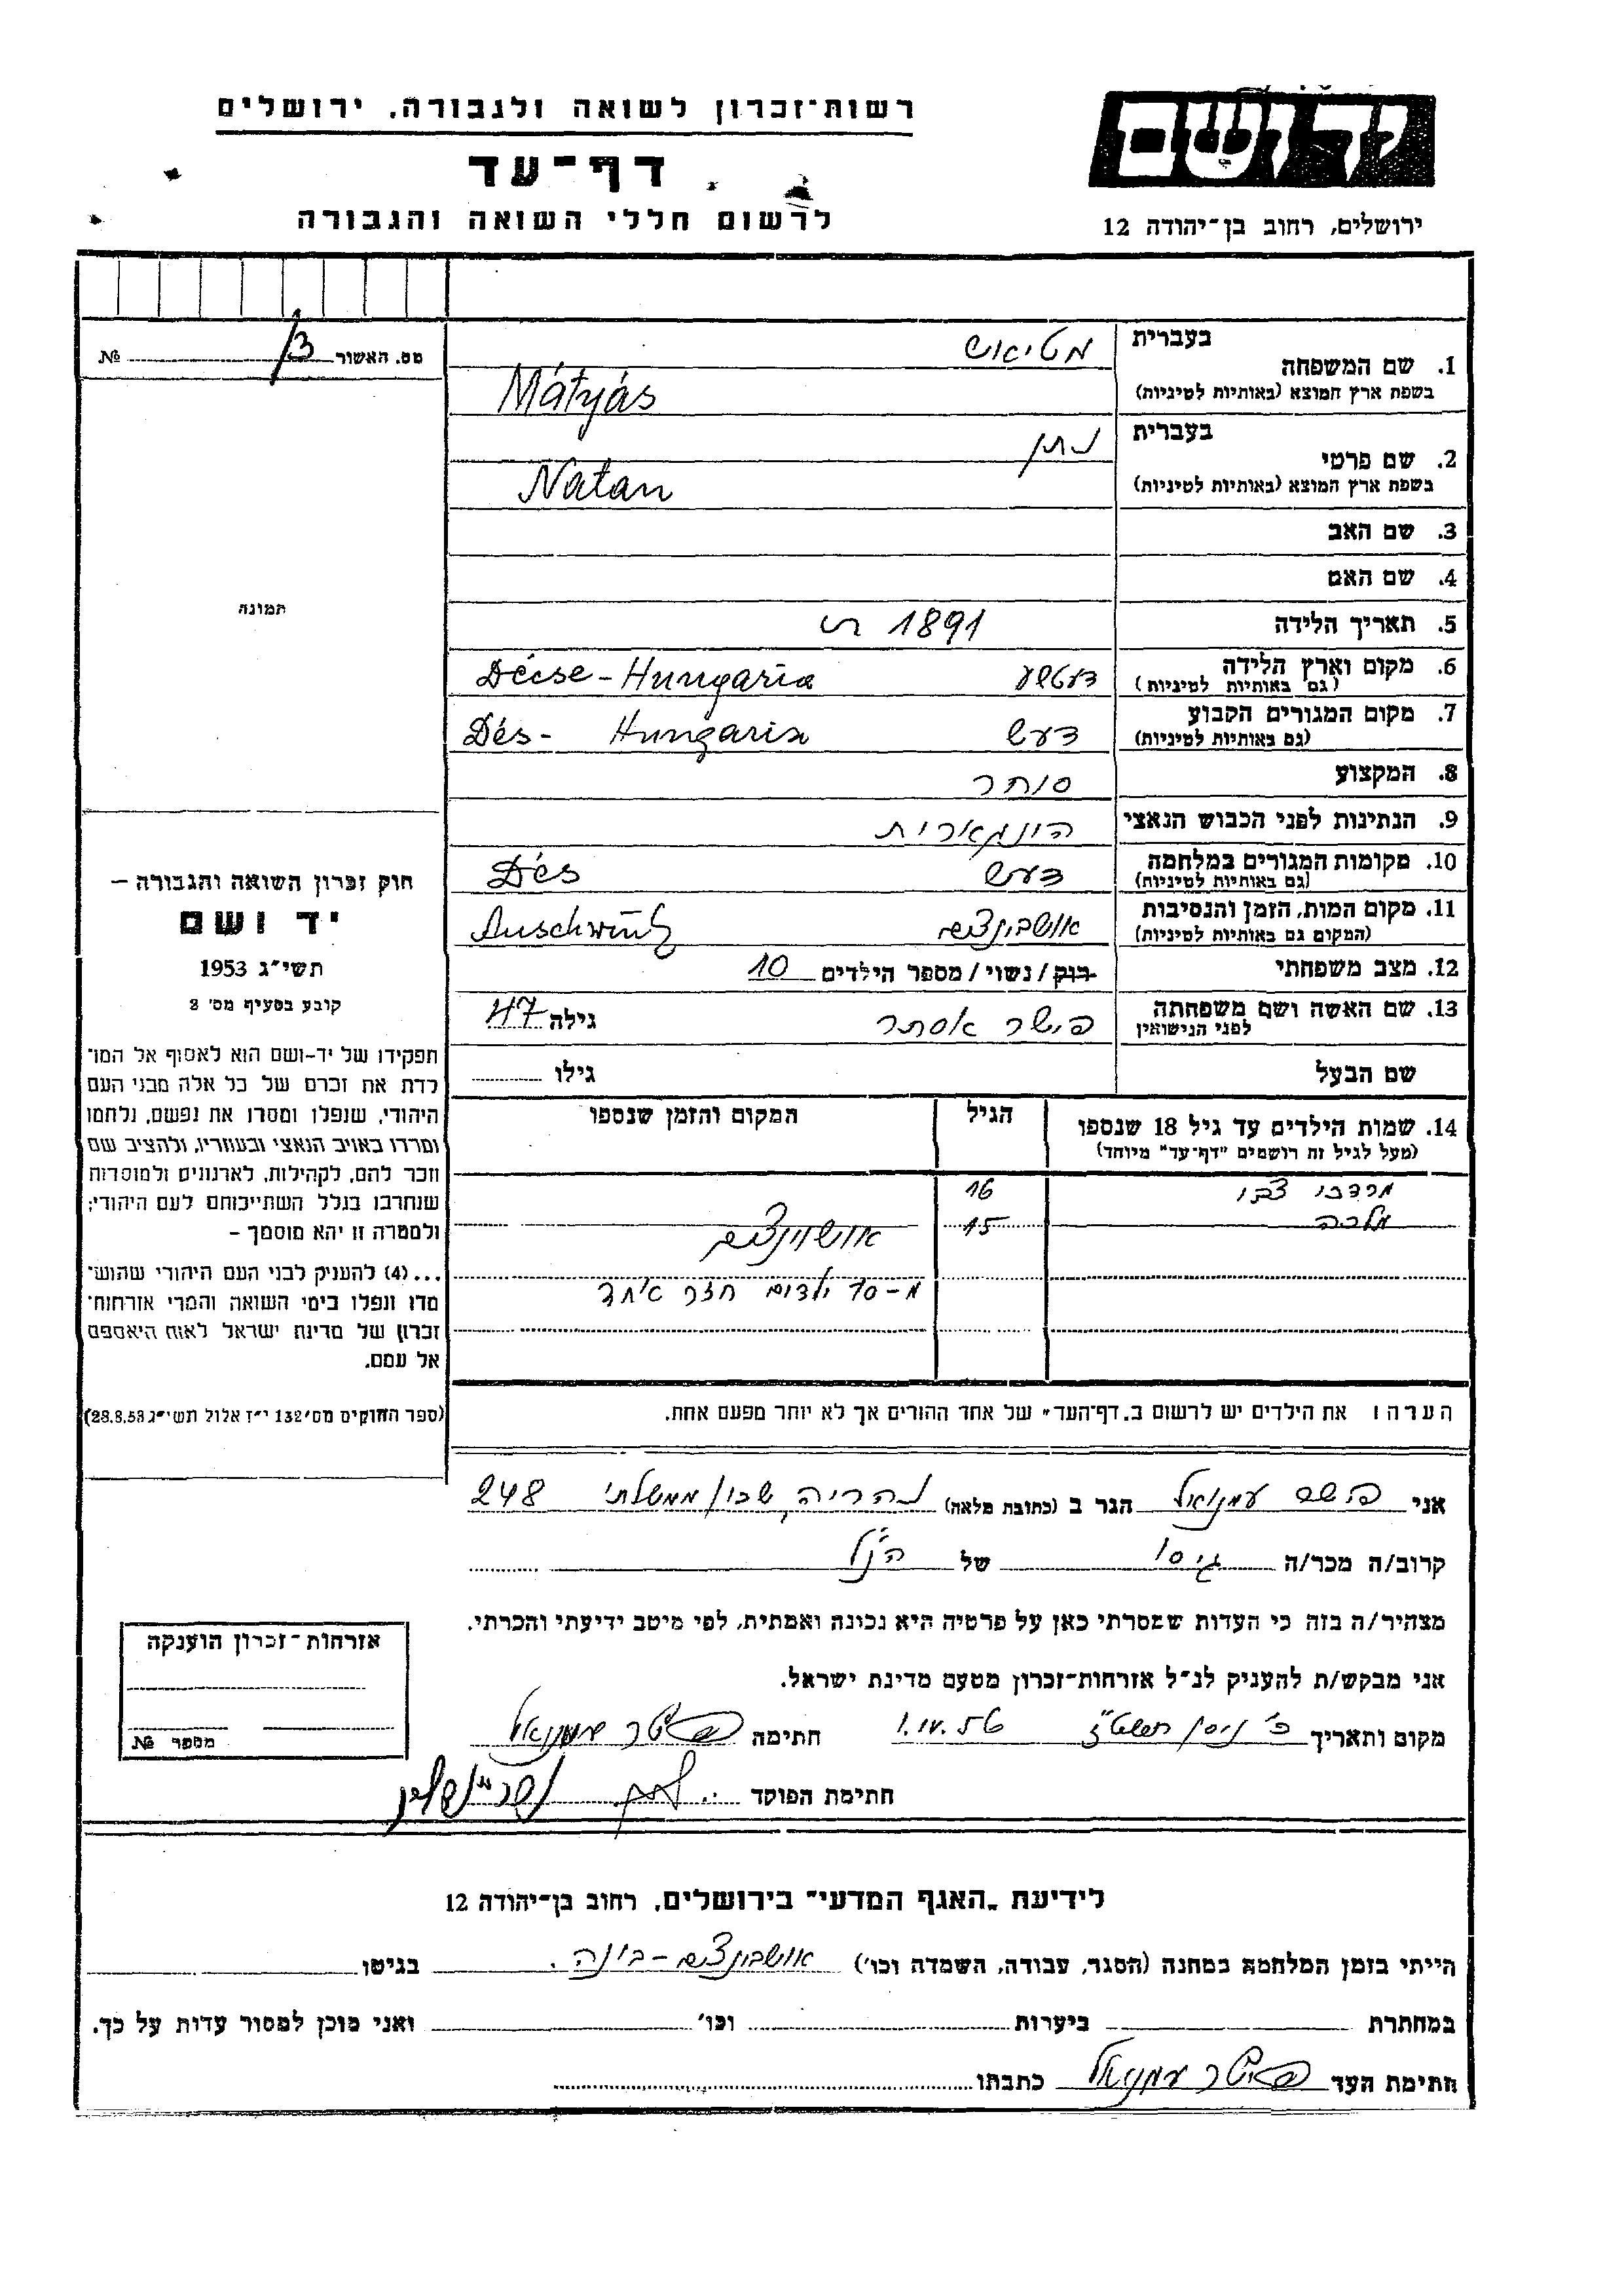 רשות-זכרון לשואה ולגבורה, ירושלים
דף-עד
לרשום חללי השואה והגבורה
יד ושם
ירושלים, רחוב בן-יהודה 12
מס. האשור № 3
1. שם המשפחה בעברית מטיאש
בשפת ארץ המוצא (באותיות לטיניות) Mátyás
2. שם פרטי בעברית נתן
בשפת ארץ המוצא (באותיות לטיניות) Natan
3. שם האב
4. שם האם
5. תאריך הלידה 1891
6. מקום וארץ הלידה (גם באותיות לטיניות) דעטשע Décse - Hungaria
7. מקום המגורים הקבוע (גם באותיות לטיניות) דעש Dés - Hungaria
8. המקצוע סוחר
9. הנתינות לפני הכבוש הנאצי הונגארית
10. מקומות המגורים במלחמה (גם באותיות לטיניות) דעש Dés
11. מקום המות, הזמן והנסיבות (המקום גם באותיות לטיניות) אושבינצים Auschwitz
12. מצב משפחתי רוק / נשוי / מספר הילדים 10
13. שם האשה ושם משפחתה לפני הנישואין פישר אסתר גילה 47
שם הבעל גילו
14. שמות הילדים עד גיל 18 שנספו הגיל המקום והזמן שנספו
(מעל לגיל זה רושמים "דף-עד" מיוחד)
מרדכי צבי 16
מלכה 15
אושווינצים
מ-10 ילדים חזר אחד
הערה: את הילדים יש לרשום ב„דף-העד" של אחד ההורים אך לא יותר מפעם אחת.
תמונה
חוק זכרון השואה והגבורה –
יד ושם
תשי"ג 1953
קובע בסעיף מס' 2
תפקידו של יד-ושם הוא לאסוף אל המו־
לדת את זכרם של כל אלה מבני העם
היהודי, שנפלו ומסרו את נפשם, נלחמו
ומרדו באויב הנאצי ובעוזריו, ולהציב שם
וזכר להם, לקהילות, לארגונים ולמוסדות
שנחרבו בגלל השתייכותם לעם היהודי;
ולמטרה זו יהא מוסמך –
...(4) להעניק לבני העם היהודי שהוש־
מדו ונפלו בימי השואה והמרי אזרחות־
זכרון של מדינת ישראל לאות היאספם
אל עמם.
(ספר החוקים מס' 132 י"ז אלול תשי"ג 28.8.53)
אני פישר עמנואל הגר ב (כתובת מלאה) נהריה שכון ממשלתי 248
קרוב/ה מכר/ה גיסו של הנ"ל
מצהיר/ה בזה כי העדות שמסרתי כאן על פרטיה היא נכונה ואמתית, לפי מיטב ידיעתי והכרתי.
אני מבקש/ת להעניק לנ"ל אזרחות-זכרון מטעם מדינת ישראל.
מקום ותאריך כ' ניסן תשט"ז 1.IV.56 חתימה פישר עמנואל
חתימת הפוקד
אזרחות-זכרון הוענקה
מספר №
לידיעת „האגף המדעי" בירושלים, רחוב בן-יהודה 12
הייתי בזמן המלחמה במחנה (הסגר, עבודה, השמדה וכו') אושבינצים - בונה. בגיטו
במחתרת ביערות וכו' ואני מוכן למסור עדות על כך.
חתימת העד פישר עמנואל כתבתו